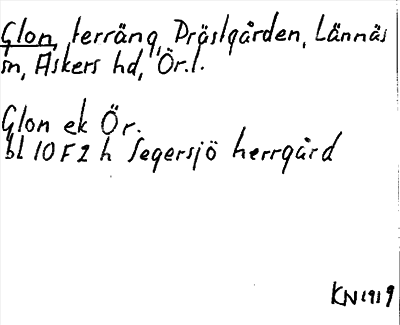 Glon, terräng, Prästgården, Lännäs
sn, Askers hd, Ör.l.
Glon ek Ör.
bl 10F2h Segersjö herrgård
KN 1919